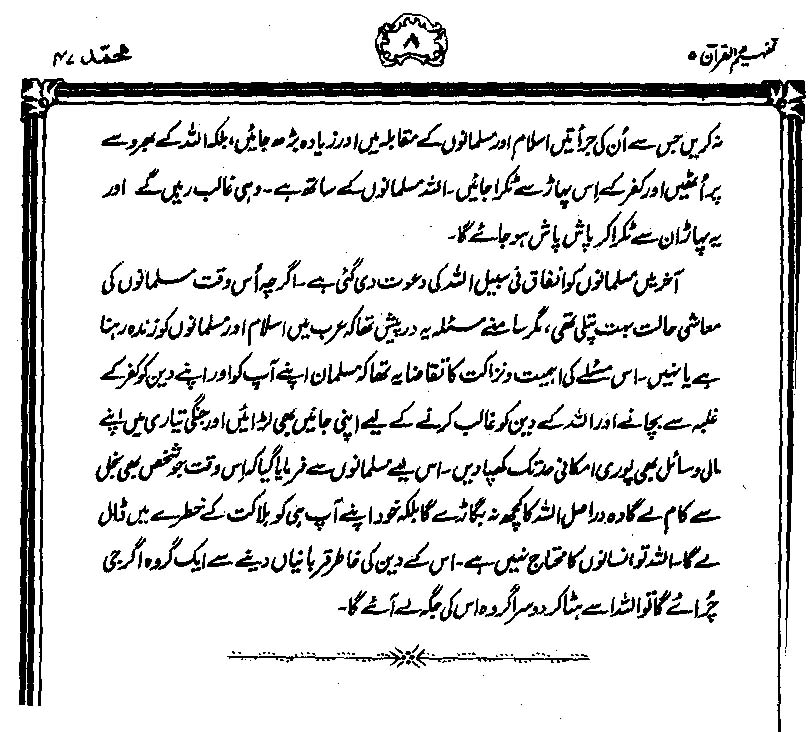 تفہیم القرآن ۵
۸
محمد ۴۷
نہ کریں جس سے اُن کی جرأتیں اسلام اور مسلمانوں کے مقابلہ میں اور زیادہ بڑھ جائیں، بلکہ اللہ کے بھروسے
پر اُٹھیں اور کفر کے اِس پہاڑ سے ٹکرا جائیں۔ اللہ مسلمانوں کے ساتھ ہے۔ وہی غالب رہیں گے اور
یہ پہاڑ ان سے ٹکرا کر پاش پاش ہو جائے گا۔
آخر میں مسلمانوں کو انفاق فی سبیل اللہ کی دعوت دی گئی ہے۔ اگرچہ اُس وقت مسلمانوں کی
معاشی حالت بہت پتلی تھی، مگر سامنے مسئلہ یہ درپیش تھا کہ عرب میں اسلام اور مسلمانوں کو زندہ رہنا
ہے یا نہیں۔ اس مسئلے کی اہمیت و نزاکت کا تقاضا یہ تھا کہ مسلمان اپنے آپ کو اور اپنے دین کو کفر کے
غلبہ سے بچانے اور اللہ کے دین کو غالب کرنے کے لیے اپنی جانیں بھی لڑائیں اور جنگی تیاری میں اپنے
مالی وسائل بھی پوری امکانی حد تک کھپا دیں۔ اس لیے مسلمانوں سے فرمایا گیا کہ اِس وقت جو شخص بھی بخل
سے کام لے گا وہ دراصل اللہ کا کچھ نہ بگاڑے گا بلکہ خود اپنے آپ ہی کو ہلاکت کے خطرے میں ڈال
لے گا۔ اللہ تو انسانوں کا محتاج نہیں ہے۔ اس کے دین کی خاطر قربانیاں دینے سے ایک گروہ اگر جی
چُرائے گا تو اللہ اسے ہٹا کر دوسرا گروہ اس کی جگہ لے آئے گا۔